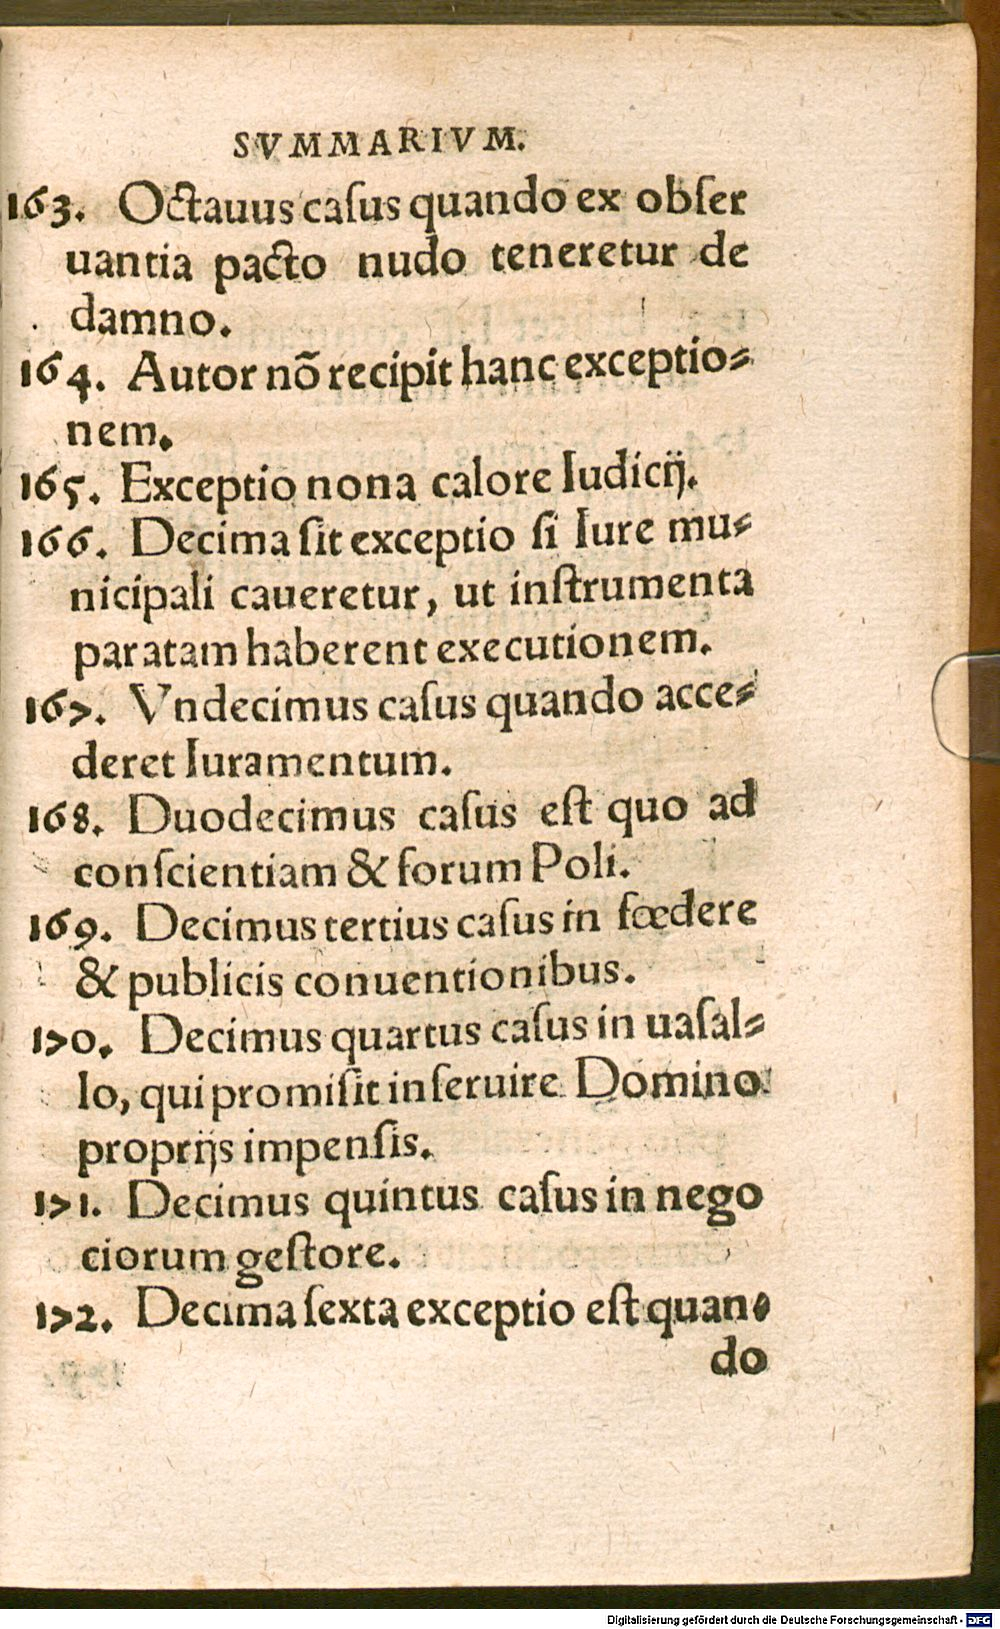 SVMMARIVM.
163. Octauus caſus quando ex obſer
uantia pacto nudo teneretur de
damno.
164. Autor nõ recipit hanc exceptio⸗
nem.
165. Exceptio nona calore Iudicij.
166. Decima ſit exceptio ſi Iure mu⸗
nicipali caueretur, ut inſtrumenta
paratam haberent executionem.
167. Vndecimus caſus quando acce⸗
deret Iuramentum.
168. Duodecimus caſus eſt quo ad
conſcientiam & forum Poli.
169. Decimus tertius caſus in fœdere
& publicis conuentionibus.
170. Decimus quartus caſus in uaſal⸗
lo, qui promiſit inſeruire Domino
proprijs impenſis.
171. Decimus quintus caſus in nego
ciorum geſtore.
172. Decima ſexta exceptio eſt quan⸗
do
Digitalisierung gefördert durch die Deutsche Forschungsgemeinschaft - DFG